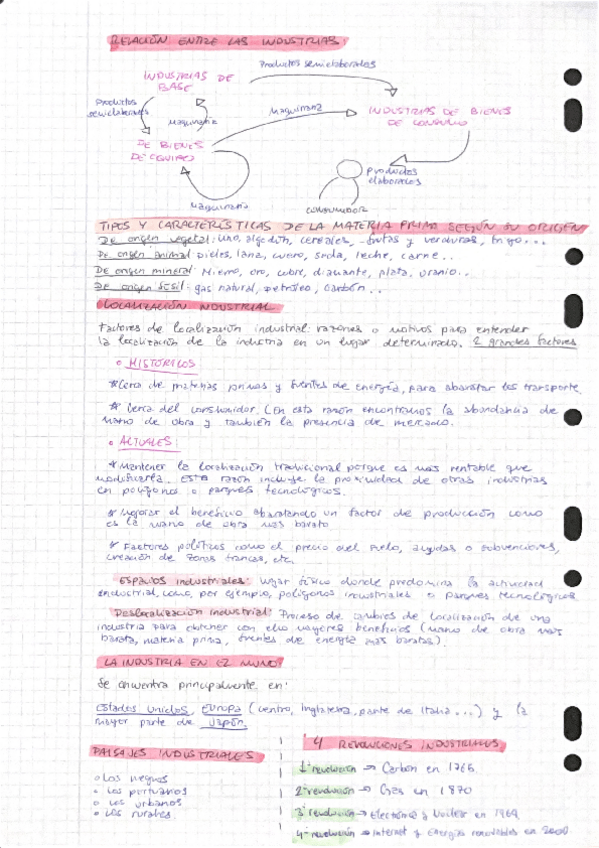 RELACIÓN ENTRE LAS INDUSTRIAS:
Productos semielaborados
INDUSTRIAS DE
BASE
Productos
semielaborados
Maquinaria
Maquinaria
INDUSTRIAS DE BIENES
DE CONSUMO
DE BIENES
DE EQUIPO
Productos
elaborados
Maquinaria
CONSUMIDOR
TIPOS Y CARACTERÍSTICAS DE LA MATERIA PRIMA SEGÚN SU ORIGEN
De origen vegetal: lino, algodón, cereales, frutas y verduras, trigo...
De origen animal: pieles, lana, cuero, seda, leche, carne...
De origen mineral: Hierro, oro, cobre, diamante, plata, uranio..
De origen fósil: gas natural, petróleo, carbón..
LOCALIZACIÓN INDUSTRIAL
Factores de localización industrial: razones o motivos para entender
la localización de la industria en un lugar determinado. 2 grandes factores
• HISTÓRICOS
* Cerca de materias primas y fuentes de energía, para abaratar los transporte.
* Cerca del consumidor. (En esta razón encontramos la abundancia de
mano de obra y también la presencia de mercado.
• ACTUALES:
* Mantener la localización tradicional porque es mas rentable que
modificarla. Esta razón incluye la proximidad de otras industrias
en polígonos o parques tecnológicos.
* Mejorar el beneficio abaratando un factor de producción como
es la mano de obra mas barato
* Factores políticos como el precio del suelo, ayudas o subvenciones,
creación de zonas francas, etc.
Espacios industriales: lugar físico donde predomina la actividad
industrial como, por ejemplo, polígonos industriales o parques tecnológicos.
Deslocalización industrial: Proceso de cambios de localización de una
industria para obtener con ello mayores beneficios (mano de obra mas
barata, materia prima, fuentes de energía mas baratas).
LA INDUSTRIA EN EL MUNDO
Se encuentra principalmente en:
Estados Unidos, Europa (centro, Inglaterra, parte de Italia...) y la
mayor parte de Japón.
PAISAJES INDUSTRIALES
• Los negros
• Los portuarios
• Los urbanos
• Los rurales.
4 REVOLUCIONES INDUSTRIALES
1ª revolución → Carbón en 1765.
2ª revolución → Gas en 1870
3ª revolución → Electrónica y Nuclear en 1969
4ª revolución → Internet y Energías renovables en 2000.